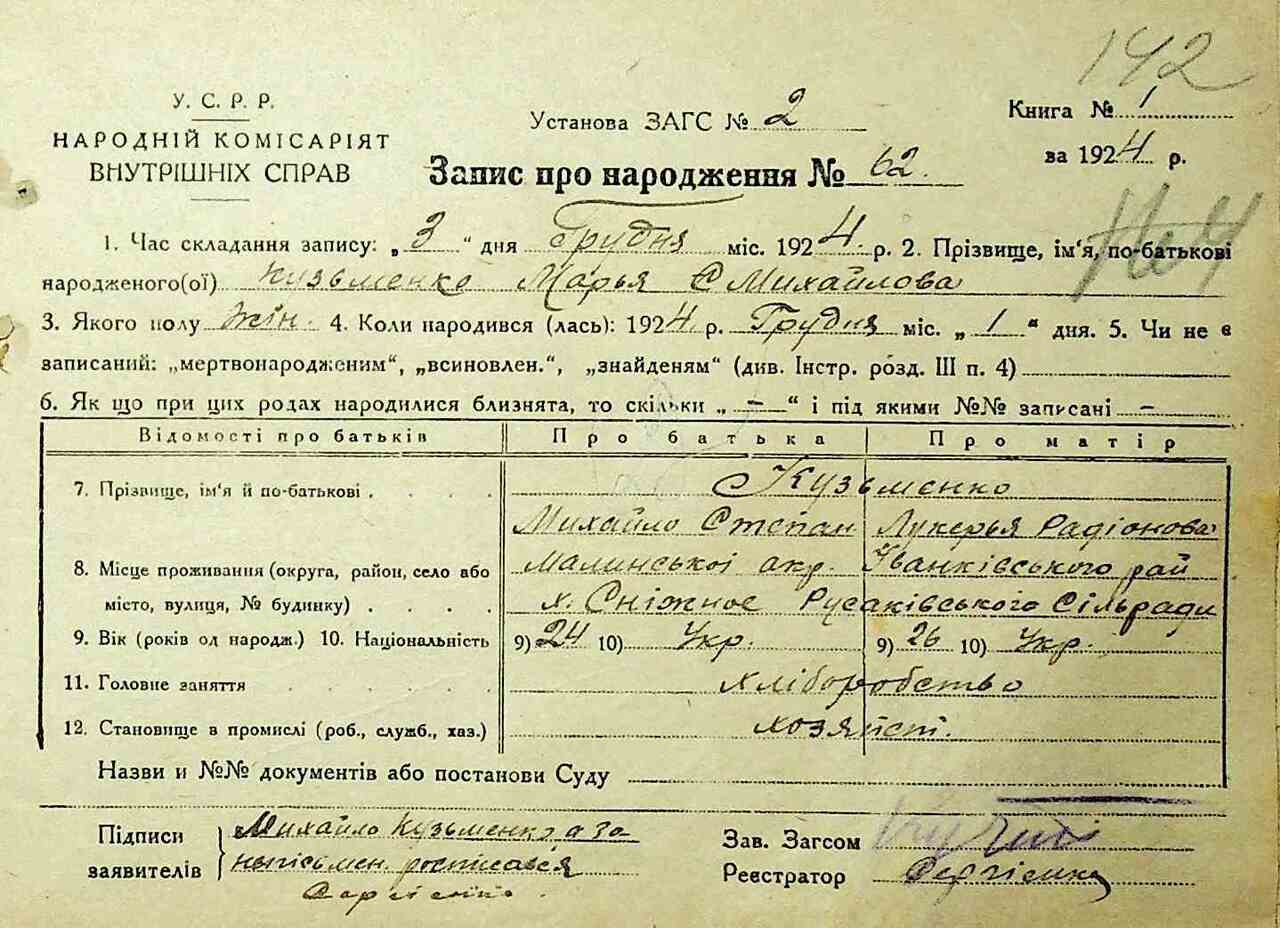 142
У. С. Р. Р.
НАРОДНІЙ КОМІСАРІЯТ
ВНУТРІШНІХ СПРАВ
Установа ЗАГС № 2
Книга № 1
за 1924 р.
Запис про народження № 62.
1. Час складання запису: „3“ дня Грудня міс. 1924 р. 2. Прізвище, ім'я, по-батькові
народженого(ої) Кузьменко Марья Михайлова
3. Якого полу жін. 4. Коли народився (лась): 1924 р. Грудня міс. „1“ дня. 5. Чи не є
записаний: „мертвонародженим“, „всиновлен.“, „знайденям“ (див. Інстр. розд. III п. 4)
6. Як що при цих родах народилися близнята, то скільки „–“ і під якими №№ записані –
Відомості про батьків Про батька Про матір
7. Прізвище, ім'я й по-батькові . . . . Кузьменко
Михайло Степан Лукерья Радіонова
8. Місце проживання (округа, район, село або Малинської окр. Іванківського рай
місто, вулиця, № будинку) . . . . х. Сніжноє Русаківського Сільради
9. Вік (років од народж.) 10. Національність 9) 24 10) Укр. 9) 26 10) Укр.
11. Головне заняття . . . . . хліборобство
12. Становище в промислі (роб., служб., хаз.) хозяйст.
Назви и №№ документів або постанови Суду
Підписи
заявителів
Михайло Кузьменко а за
неписьмен. росписався
Сергієнко
Зав. Загсом
Реєстратор Сергієнко